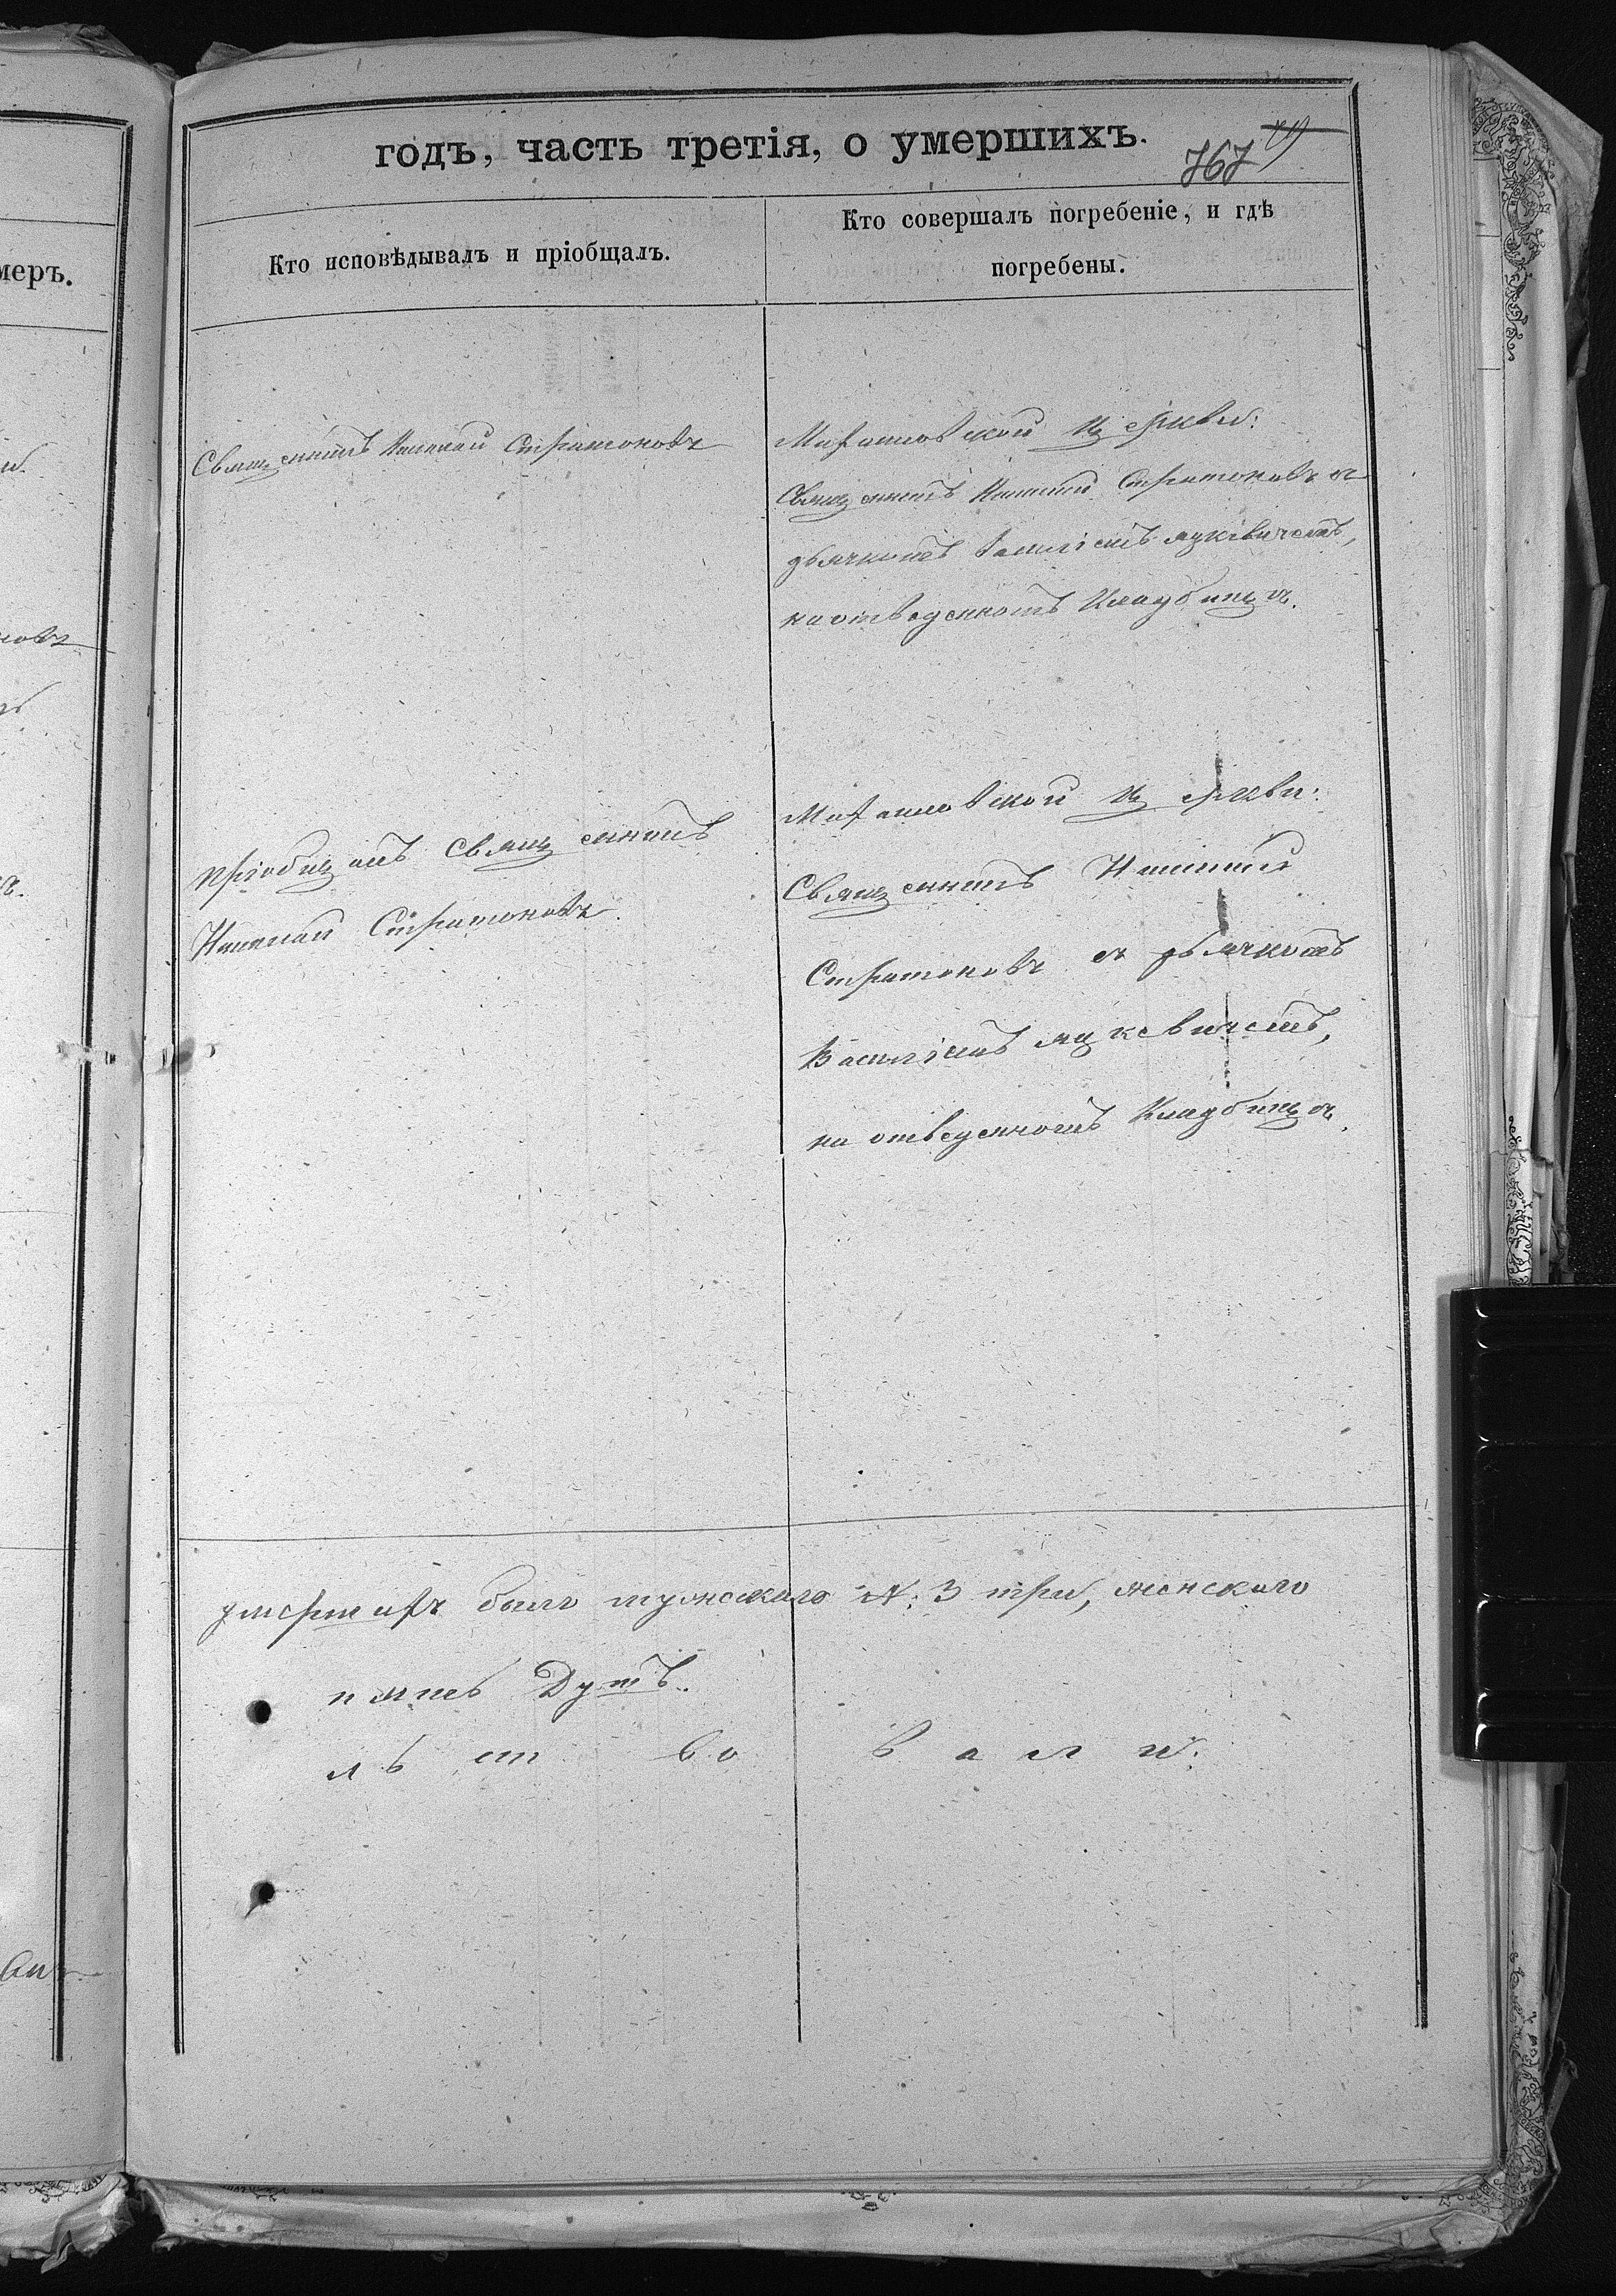 годъ, часть третія, о умершихъ.
767
Кто исповѣдывалъ и пріобщалъ.
Кто совершалъ погребеніе, и гдѣ
погребены.
меръ.
Священникъ Николай Стратоновъ
церкви:
Священникъ Николай Стратоновъ съ
дьячкомъ Василіемъ Яцкевичемъ,
на отведенномъ кладбищѣ.
пріобщалъ Священникъ
Николай Стратоновъ.
церкви:
Священникъ Николай
Стратоновъ съ дьячкомъ
Василіемъ Яцкевичемъ,
на отведенномъ кладбищѣ.
умершихъ было мужскаго № 3 три, женскаго
пять Душъ.
ль ст во в а л и.